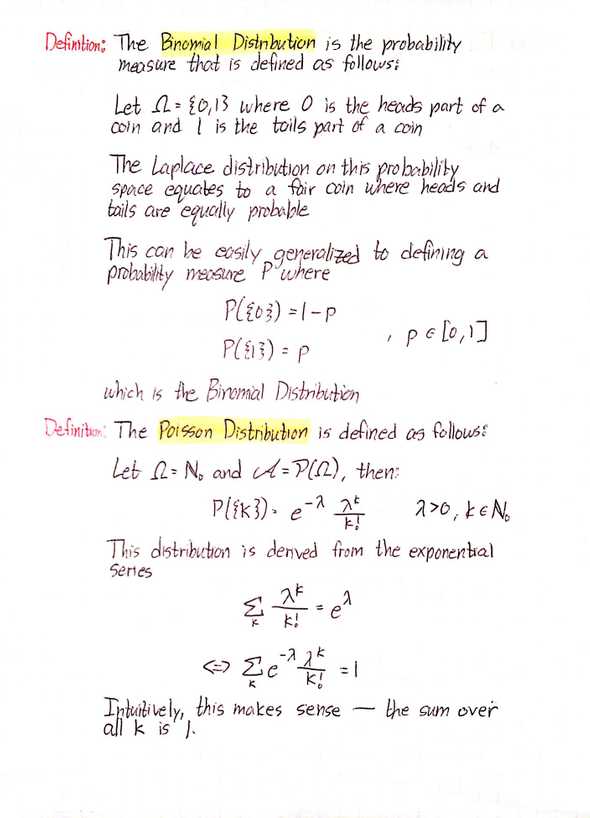 Definition: The Binomial Distribution is the probability
measure that is defined as follows:
Let Ω = {0,1} where 0 is the heads part of a
coin and 1 is the tails part of a coin
The Laplace distribution on this probability
space equates to a fair coin where heads and
tails are equally probable
This can be easily generalized to defining a
probability measure P where
P({0}) = 1-p
, p ∈ [0,1]
P({1}) = p
which is the Binomial Distribution
Definition: The Poisson Distribution is defined as follows:
Let Ω = ℕ₀ and 𝒜 = 𝒫(Ω), then:
P({k}) = e^{-λ} λ^k/k! λ>0, k ∈ ℕ₀
This distribution is derived from the exponential
series
∑_k λ^k/k! = e^λ
<=> ∑_k e^{-λ} λ^k/k! = 1
Intuitively, this makes sense — the sum over
all k is 1.